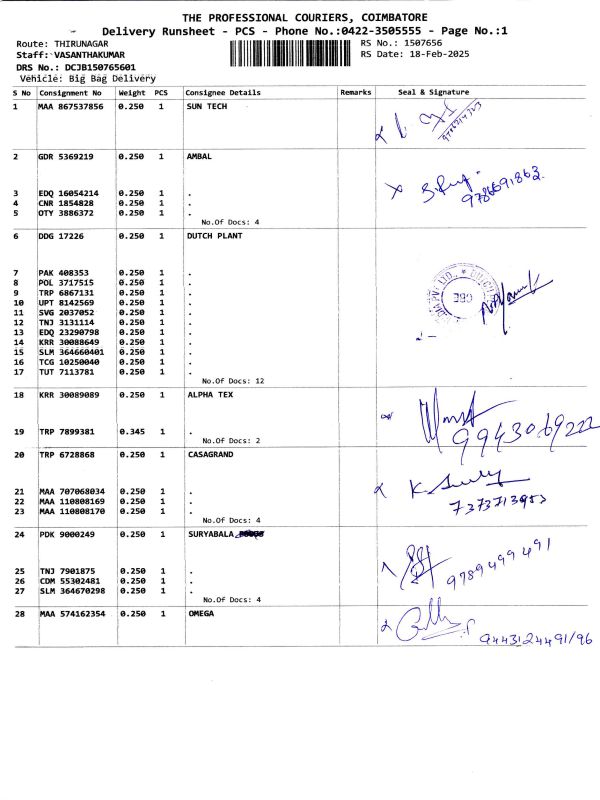 THE PROFESSIONAL COURIERS, COIMBATORE
Delivery Runsheet - PCS - Phone No.:0422-3505555 - Page No.:1
Route: THIRUNAGAR RS No.: 1507656
Staff: VASANTHAKUMAR RS Date: 18-Feb-2025
DRS No.: DCJB150765601
Vehicle: Big Bag Delivery
S No Consignment No Weight PCS Consignee Details Remarks Seal & Signature
1 MAA 867537856 0.250 1 SUN TECH
2 GDR 5369219 0.250 1 AMBAL
3 EDQ 16054214 0.250 1 .
9786691863.
4 CNR 1854828 0.250 1 .
5 OTY 3886372 0.250 1 .
No.Of Docs: 4
6 DDG 17226 0.250 1 DUTCH PLANT
7 PAK 408353 0.250 1 .
8 POL 3717515 0.250 1 .
9 TRP 6867131 0.250 1 .
10 UPT 8142569 0.250 1 .
CBE
11 SVG 2037052 0.250 1 .
12 TNJ 3131114 0.250 1 .
13 EDQ 23290798 0.250 1 .
14 KRR 30088649 0.250 1 .
15 SLM 364660401 0.250 1 .
16 TCG 10250040 0.250 1 .
17 TUT 7113781 0.250 1 .
No.Of Docs: 12
18 KRR 30089089 0.250 1 ALPHA TEX
19 TRP 7899381 0.345 1 .
9943069222
No.Of Docs: 2
20 TRP 6728868 0.250 1 CASAGRAND
21 MAA 707068034 0.250 1 .
22 MAA 110808169 0.250 1 .
23 MAA 110808170 0.250 1 .
7373713953
No.Of Docs: 4
24 PDK 9000249 0.250 1 SURYABALA
25 TNJ 7901875 0.250 1 .
9789499491
26 CDM 55302481 0.250 1 .
27 SLM 364670298 0.250 1 .
No.Of Docs: 4
28 MAA 574162354 0.250 1 OMEGA
9443124491/96